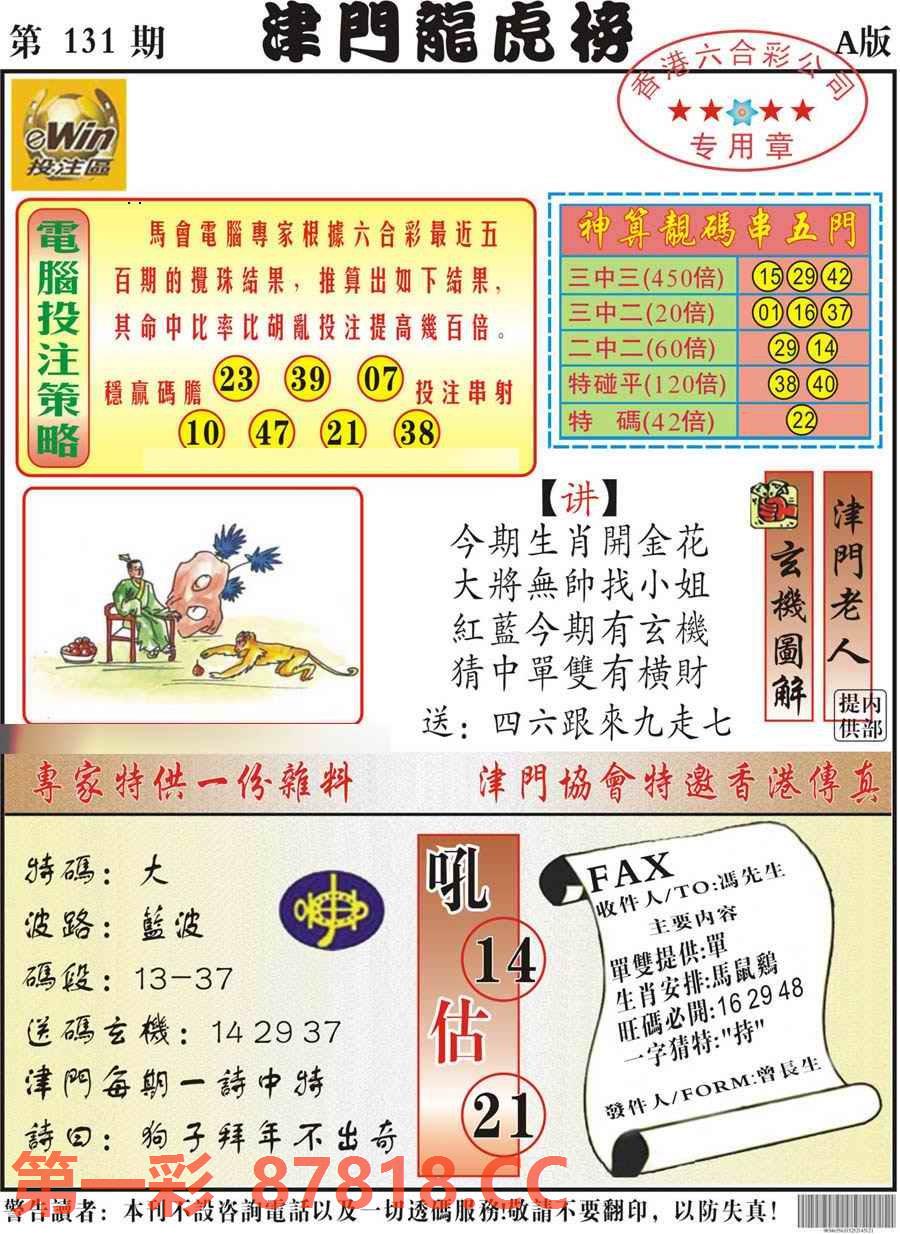 第 131 期
津門龍虎榜
A版
香港六合彩公司
专用章
eWin
投注區
電腦投注策略
馬會電腦專家根據六合彩最近五
百期的攪珠結果，推算出如下結果，
其命中比率比胡亂投注提高幾百倍。
穩贏碼膽 23 39 07 投注串射
10 47 21 38
神算靚碼串五門
三中三(450倍) 15 29 42
三中二(20倍) 01 16 37
二中二(60倍) 29 14
特碰平(120倍) 38 40
特 碼(42倍) 22
【讲】
今期生肖開金花
大將無帥找小姐
紅藍今期有玄機
猜中單雙有橫財
送：四六跟來九走七
玄機圖解
津門老人
内部提供
專家特供一份雜料
津門協會特邀香港傳真
特碼：大
波路：藍波
碼段：13-37
送碼玄機：14 29 37
津門每期一詩中特
詩曰：狗子拜年不出奇
吼
14
估
21
FAX
收件人/TO:馮先生
主要内容
單雙提供:單
生肖安排:馬鼠鷄
旺碼必開:16 29 48
一字猜特:"持"
發件人/FORM:曾長生
第一彩 87818.CC
警告讀者：本刊不設咨詢電話以及一切透碼服務!敬請不要翻印，以防失真!